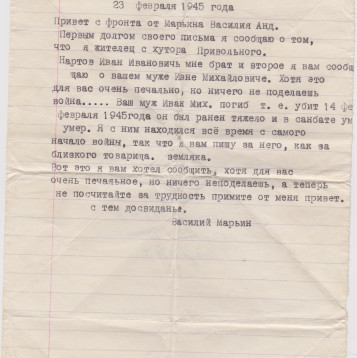 23 февраля 1945 года
Привет с фронта от Марьина Василия Анд.
Первым долгом своего письма я сообщаю о том,
что я жителец с хутора Привольного.
Нартов Иван Ивановичь мне брат и второе я вам сообщ
щаю о вашем муже Иване Михайловиче. Хотя это
для вас очень печально, но ничего не поделаешь
война..... Ваш муж Иван Мих. погиб т. е. убит 14 фе
февраля 1945года он был ранен тяжело и в санбате ум
умер. Я с ним находился всё время с самого
начало войны, так что я вам пишу за него, как за
близкого товарища. земляка.
Вот это я вам хотел сообщить, хотя для вас
очень печальное, но ничего неподелаешь, а теперь
не посчитайте за трудность примите от меня привет.
с тем досвиданье.
Василий Марьин